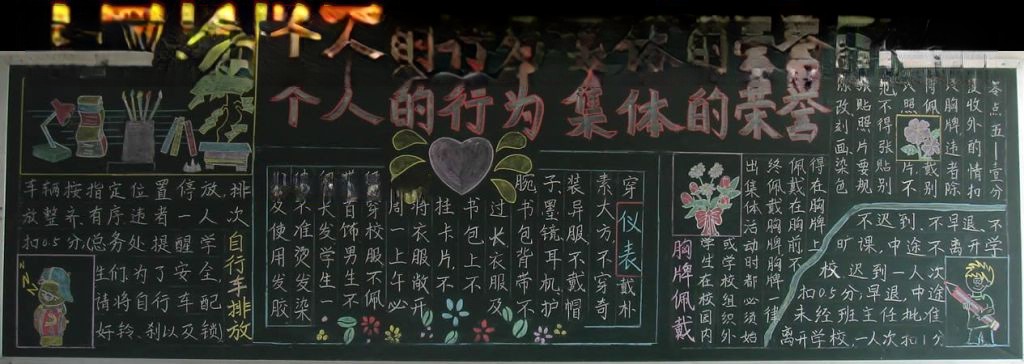 个人的行为 集体的荣誉
车辆按指定位置停放,排
放整齐,有序违者一人一次
扣0.5分(总务处提醒学
生们为了安全,
请将自行车配
好铃、刹以及锁)
自行车排放
仪表
穿戴朴
素大方,不穿奇
装异服,不戴帽
子、墨镜、耳机、护
腕,书包背带不
过长,衣服及
书包上不
挂卡片,不
将衣服敞开
周一上午必
穿校服,不佩
首饰,男生不
长发,学生一
不准烫发染
及使用发胶
胸牌佩戴
学生在校园内
或学校组织外
出集体活动时都必须始
终佩戴胸牌,胸牌一律
佩戴在胸前,不
得在胸牌上
涂改刻画,染色
张贴照片要规
范不得张贴别
人照片,不
得佩戴别
人胸牌违者除
没收外的情扣
零点五—壹分
不迟到、不早退、不
旷课,中途不离开学
校,迟到一人次
扣0.5分,早退,中途
未经班主任批准
离开学校,一人次扣1分